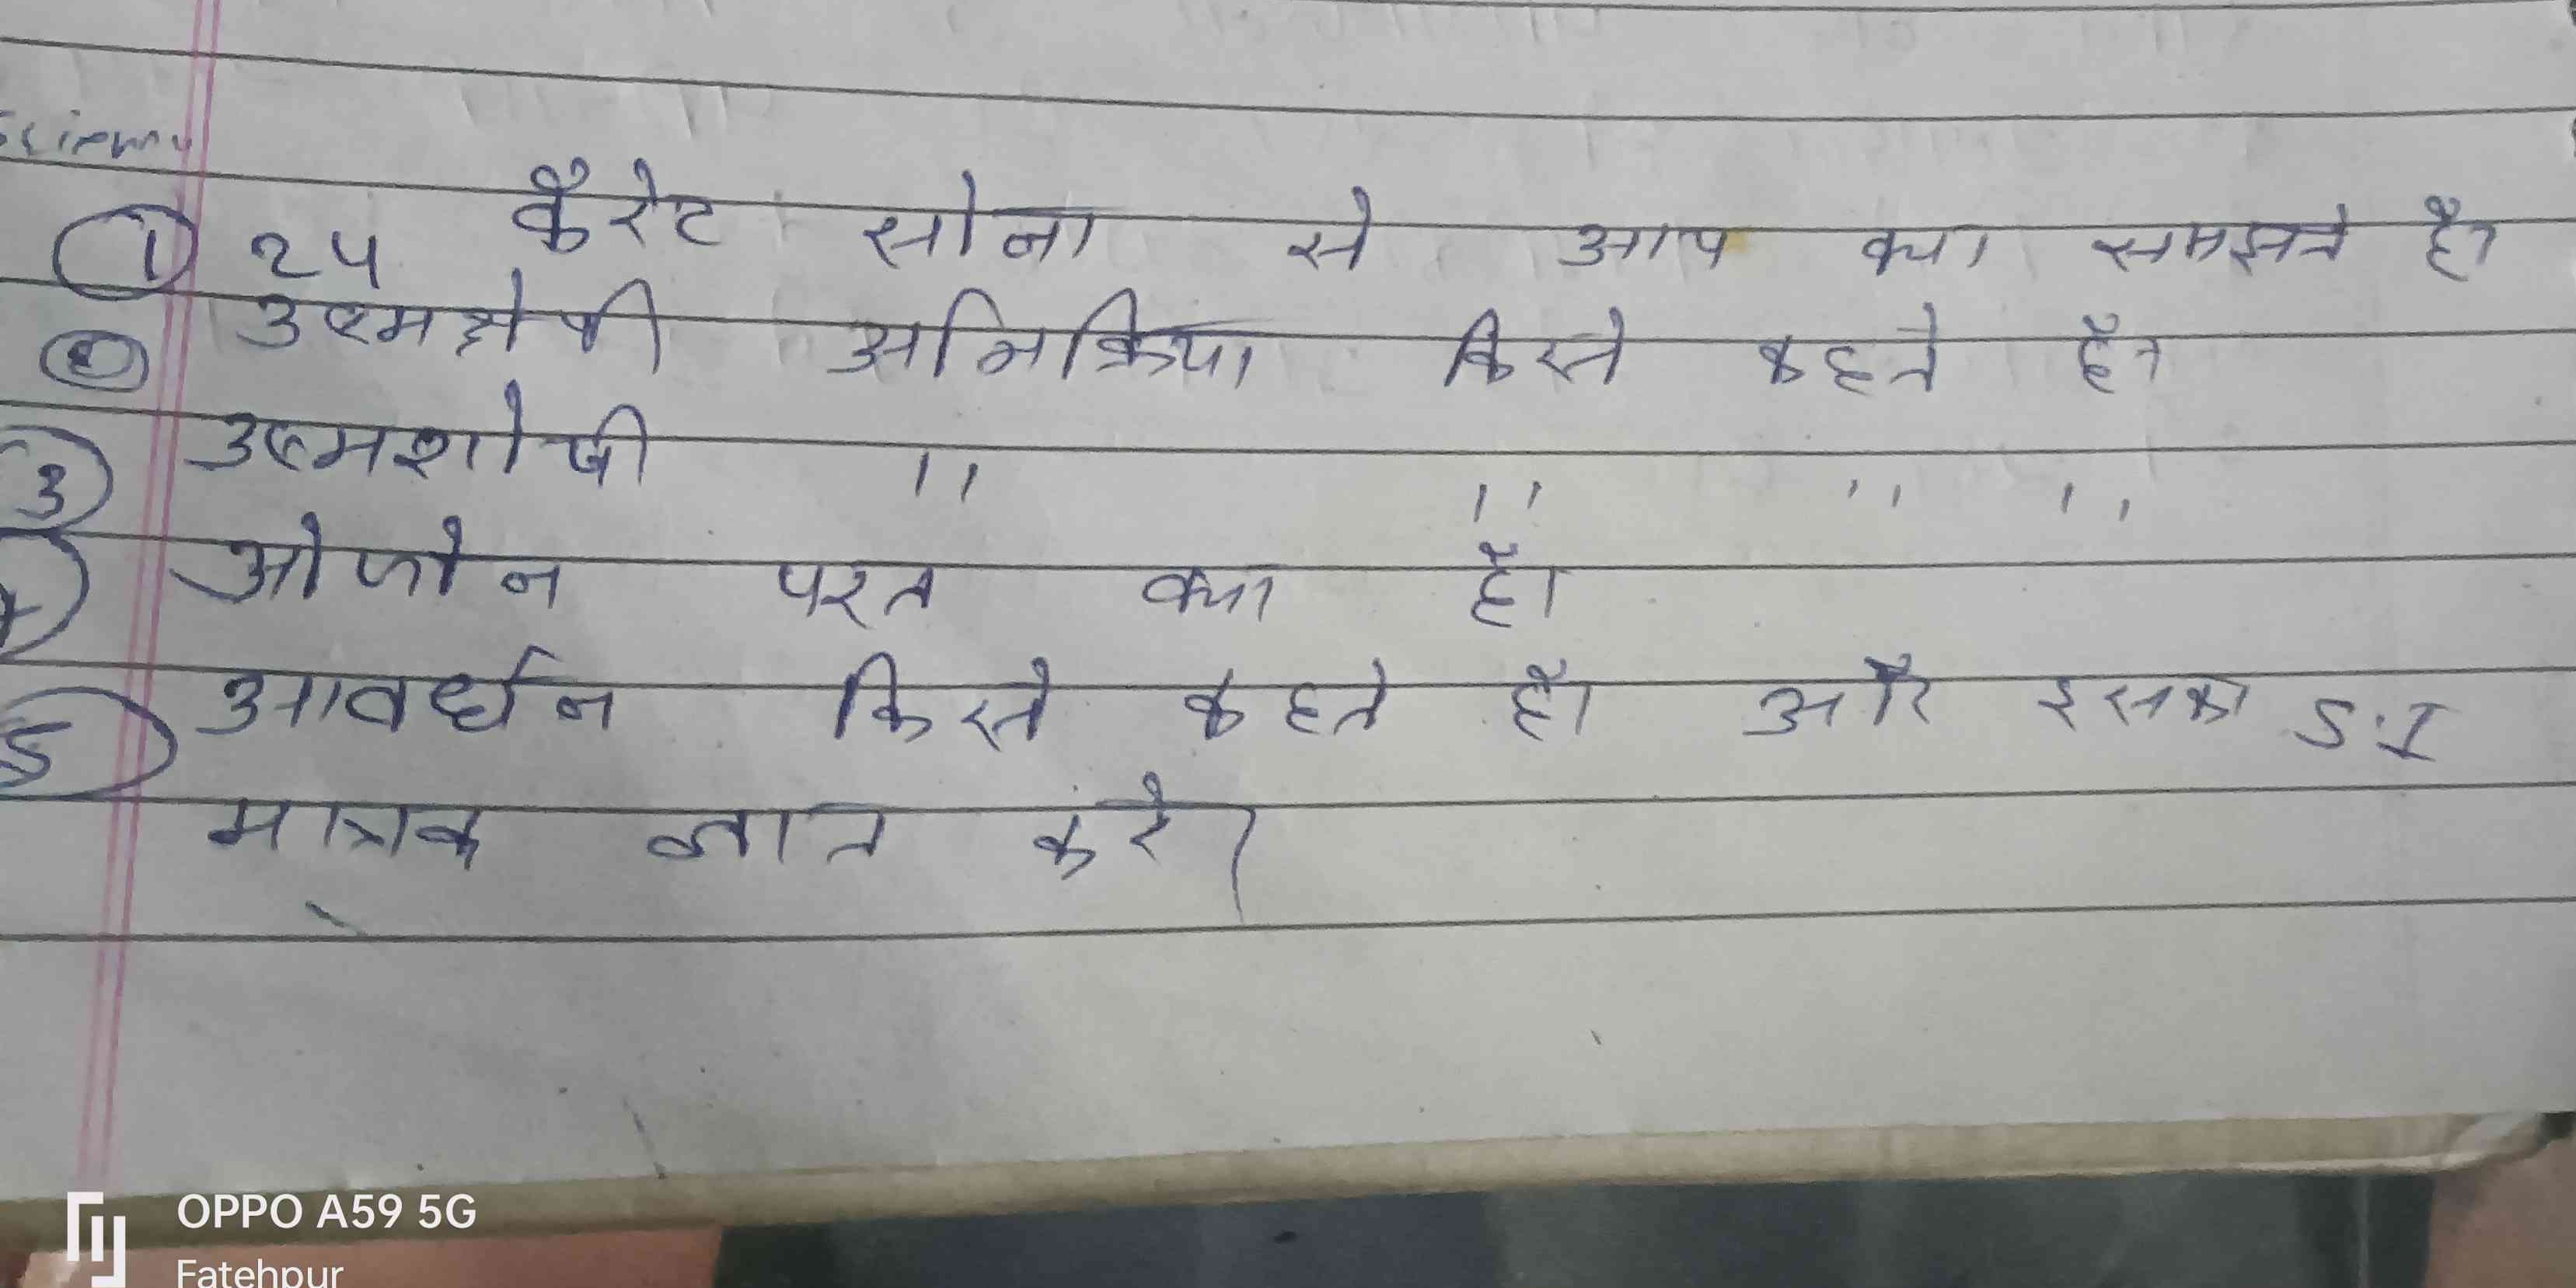 Science
① 24 कैरेट सोना से आप क्या समझते है।
② उष्मक्षेपी अभिक्रिया किसे कहते है।
③ उष्मशोषी 11 11 11 11
④ ओजोन परत क्या है।
⑤ आवर्धन किसे कहते है। और इसका S.I
मात्रक ज्ञात करे।
OPPO A59 5G
Fatehpur